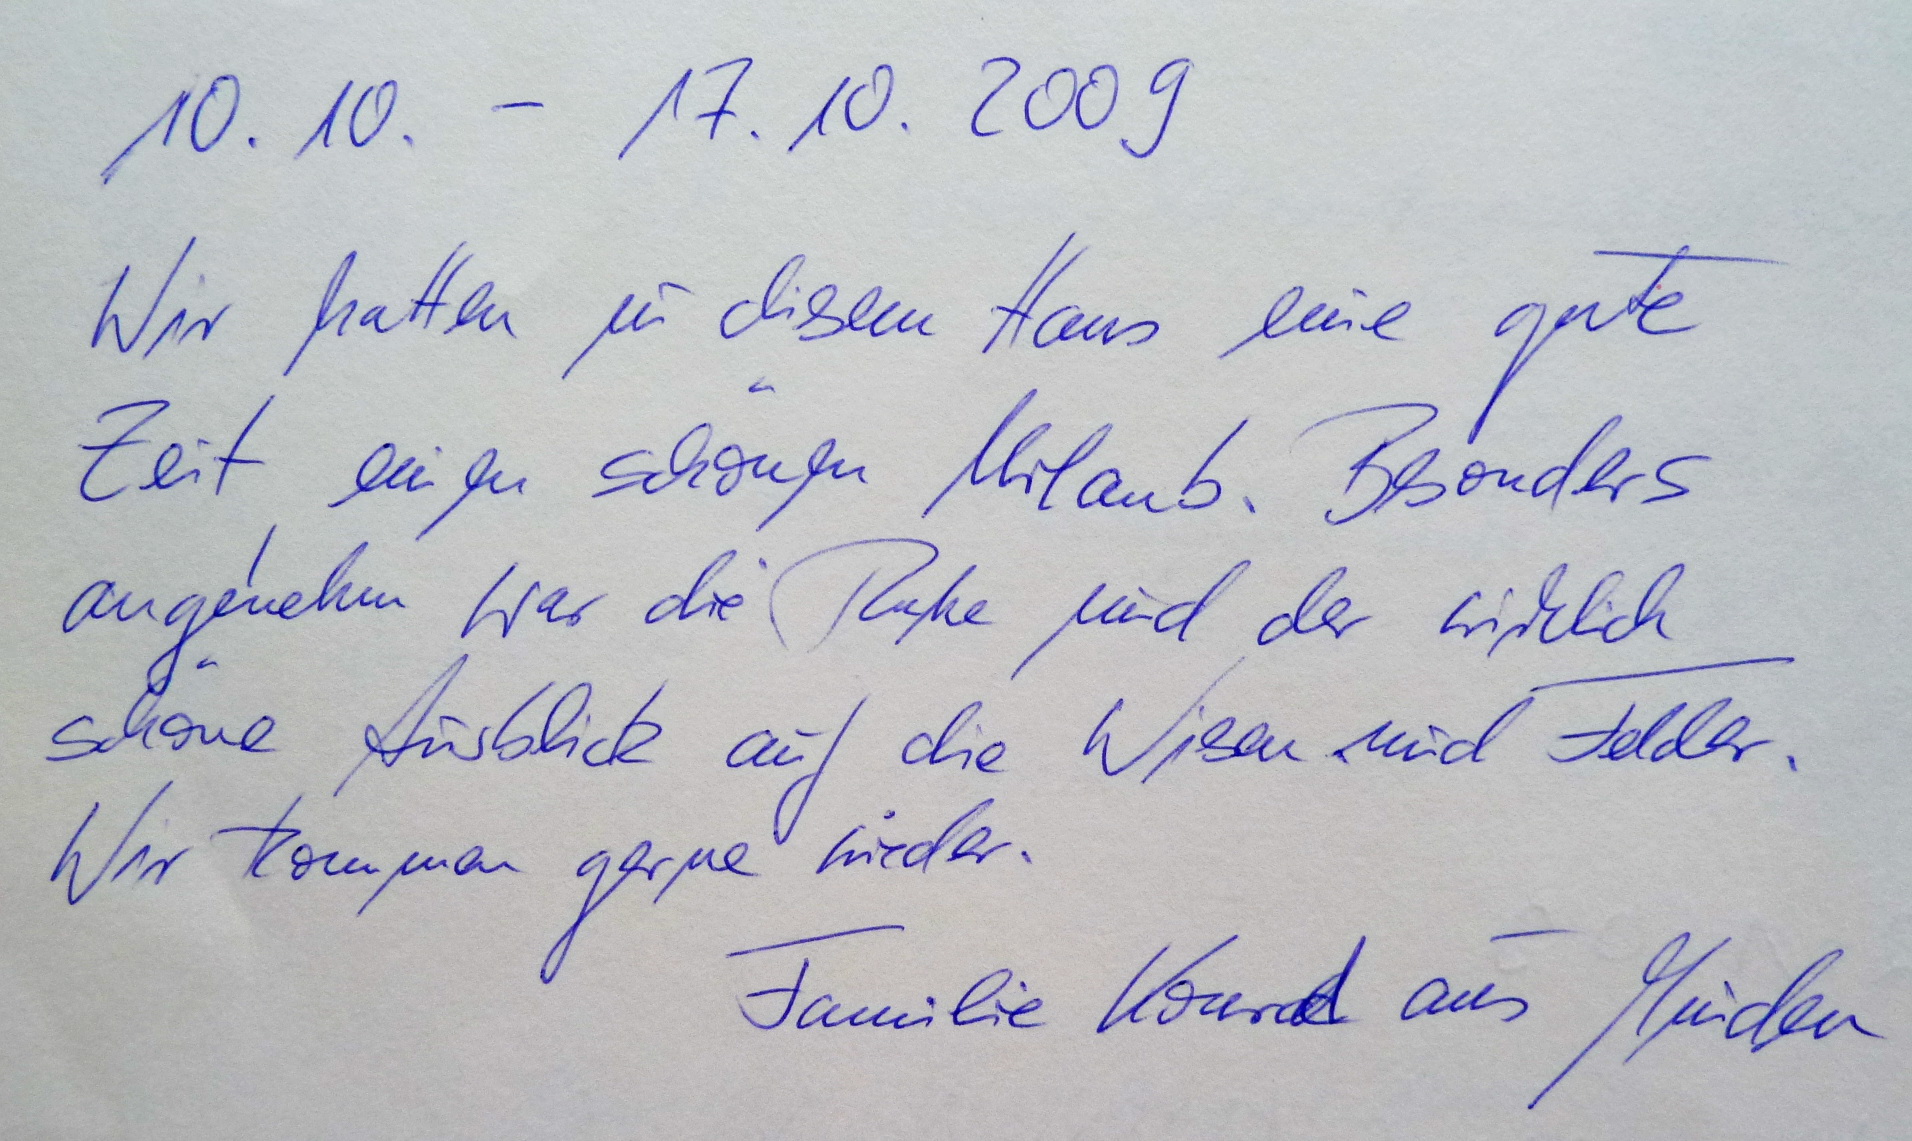 10.10. – 17.10.2009
Wir hatten in diesem Haus eine gute
Zeit einen schönen Urlaub. Besonders
angenehm war die Ruhe und der wirklich
schöne Ausblick auf die Wiesen und Felder.
Wir kommen gerne wieder.
Familie Konrad aus Minden